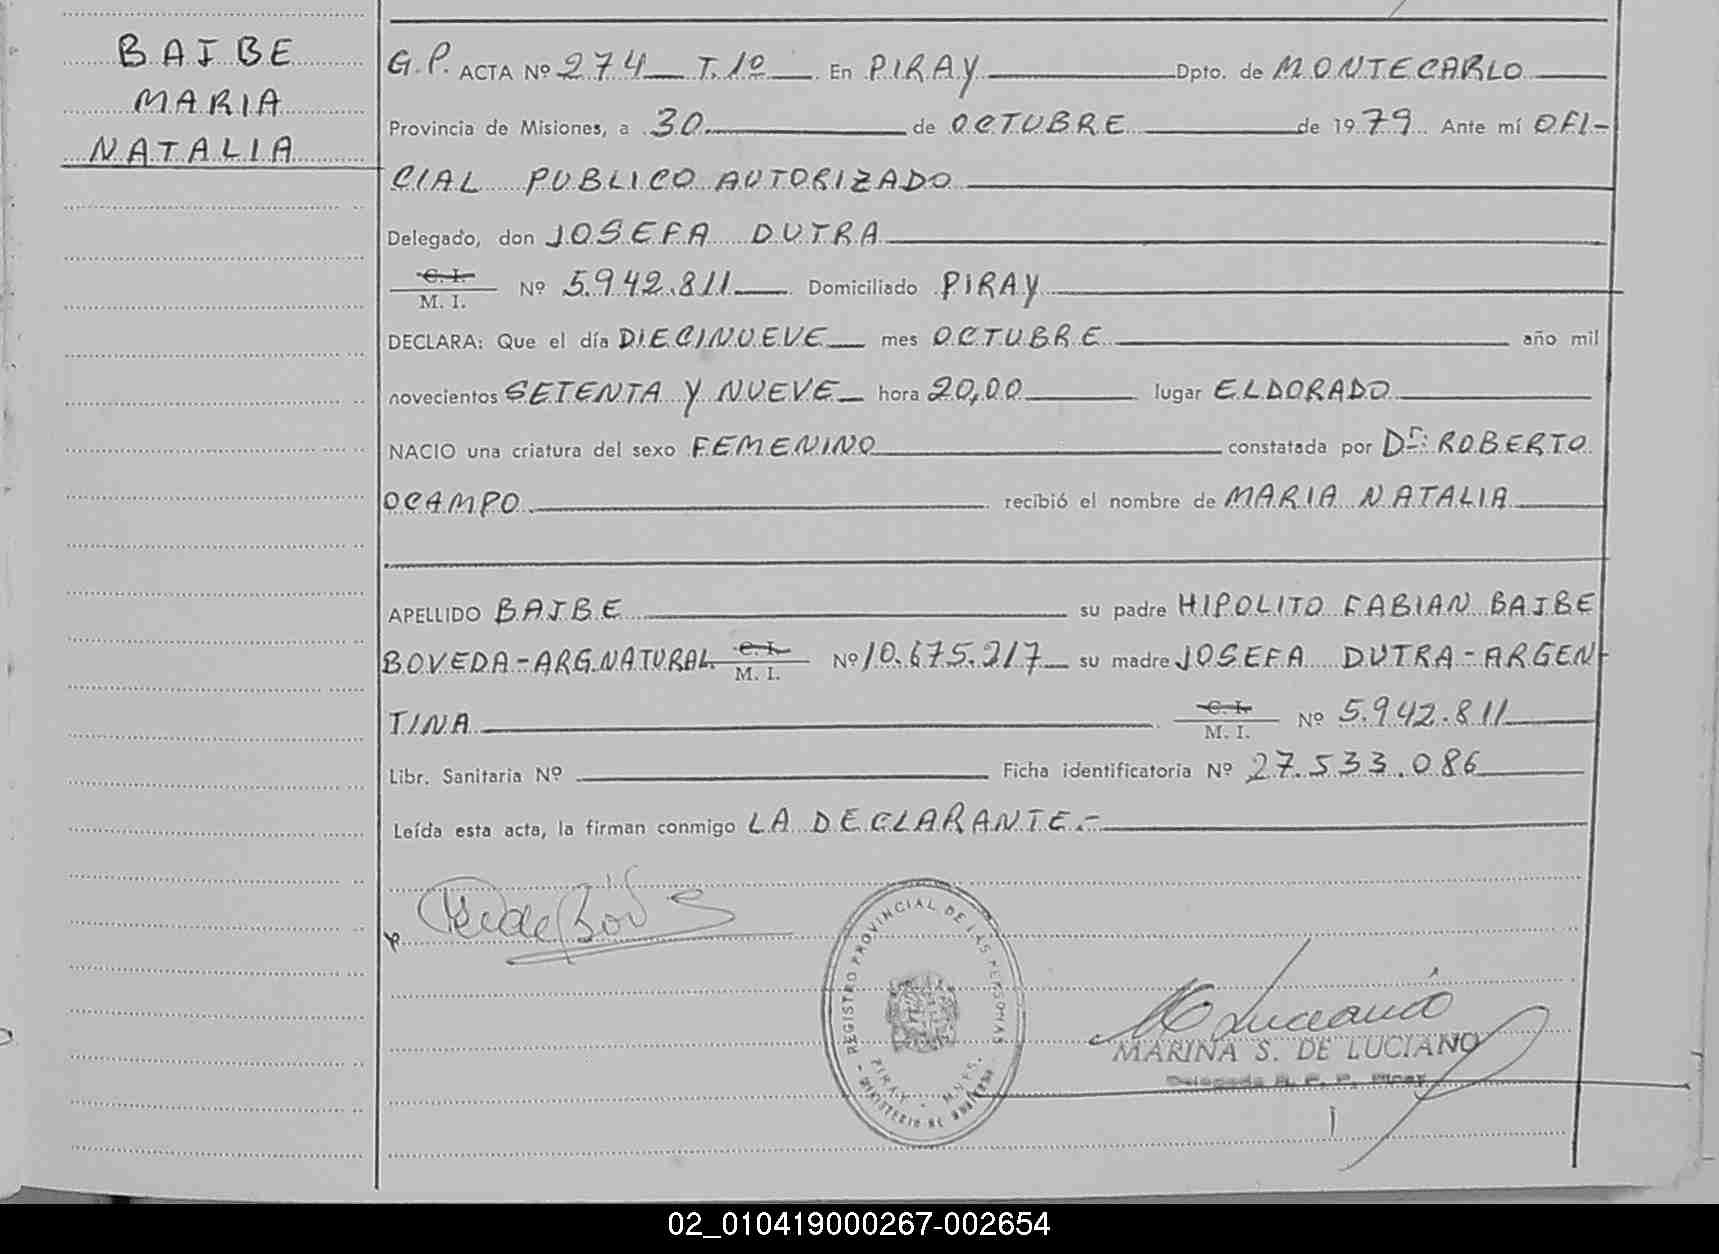 BAIBE
MARIA
NATALIA
G.P. ACTA Nº 274 T.1º En PIRAY Dpto. de MONTECARLO
Provincia de Misiones, a 30 de OCTUBRE de 1979 Ante mí OFI-
CIAL PUBLICO AUTORIZADO
Delegado, don JOSEFA DUTRA
C. I.
M. I. Nº 5.942.811 Domiciliado PIRAY
DECLARA: Que el día DIECINUEVE mes OCTUBRE año mil
novecientos SETENTA Y NUEVE hora 20,00 lugar ELDORADO
NACIO una criatura del sexo FEMENINO constatada por Dr: ROBERTO
OCAMPO recibió el nombre de MARIA NATALIA
APELLIDO BAIBE su padre HIPOLITO FABIAN BAIBE
BOVEDA-ARG.NATURAL C. I. M. I. Nº 10.675.217 su madre JOSEFA DUTRA-ARGEN
TINA C. I. M. I. Nº 5.942.811
Libr. Sanitaria Nº Ficha identificatoria Nº 27.533.086
Leída esta acta, la firman conmigo LA DECLARANTE.-
REGISTRO PROVINCIAL DE LAS PERSONAS
PIRAY - MNES.
MINISTERIO DE
M Luciano
MARINA S. DE LUCIANO
Delegada R. P. P. Piray
02_010419000267-002654